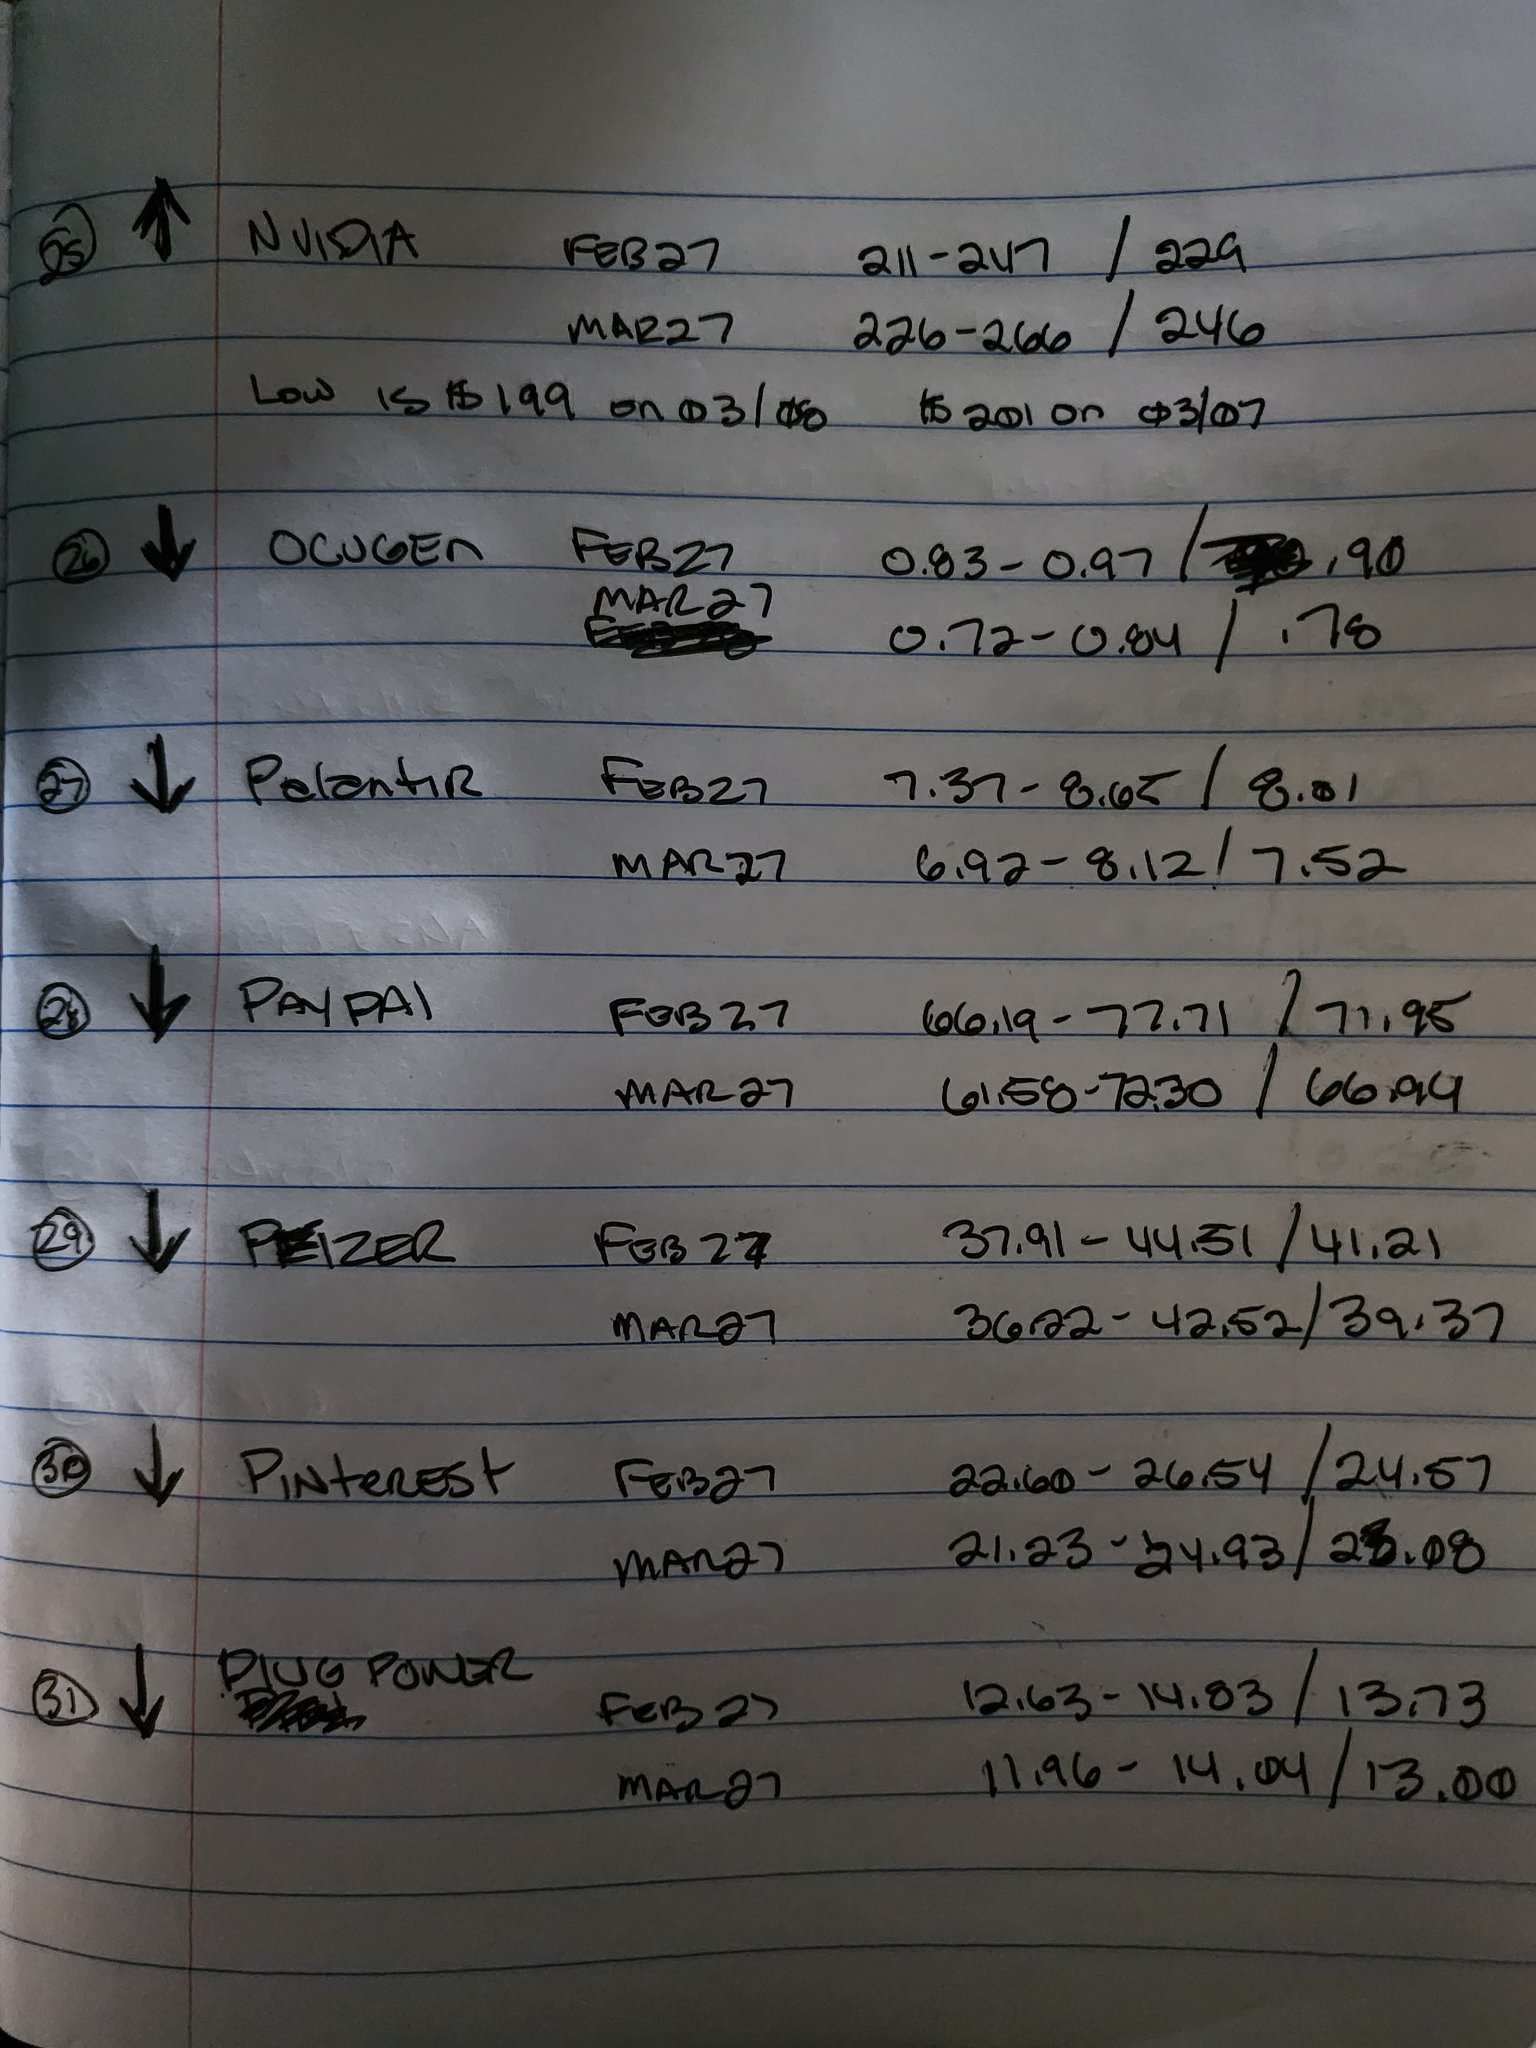 25 ↑ NVIDIA FEB27 211-247 / 229
MAR27 226-266 / 246
Low is $199 on 03/08 $201 on 03/07
26 ↓ OCUGEN FEB27 0.83-0.97 / .90
MAR27
0.72-0.84 / .78
27 ↓ PelantiR FEB27 7.37-8.65 / 8.01
MAR27 6.92-8.12 / 7.52
28 ↓ PAYPAl FEB27 66.19-77.71 / 71.95
MAR27 61.58-72.30 / 66.94
29 ↓ PFIZER FEB27 37.91-44.51 / 41.21
MAR27 36.22-42.52 / 39.37
30 ↓ PINteREST FEB27 22.60-26.54 / 24.57
MAR27 21.23-24.93 / 23.08
31 ↓ PlUG POWER FEB27 12.63-14.83 / 13.73
MAR27 11.96-14.04 / 13.00